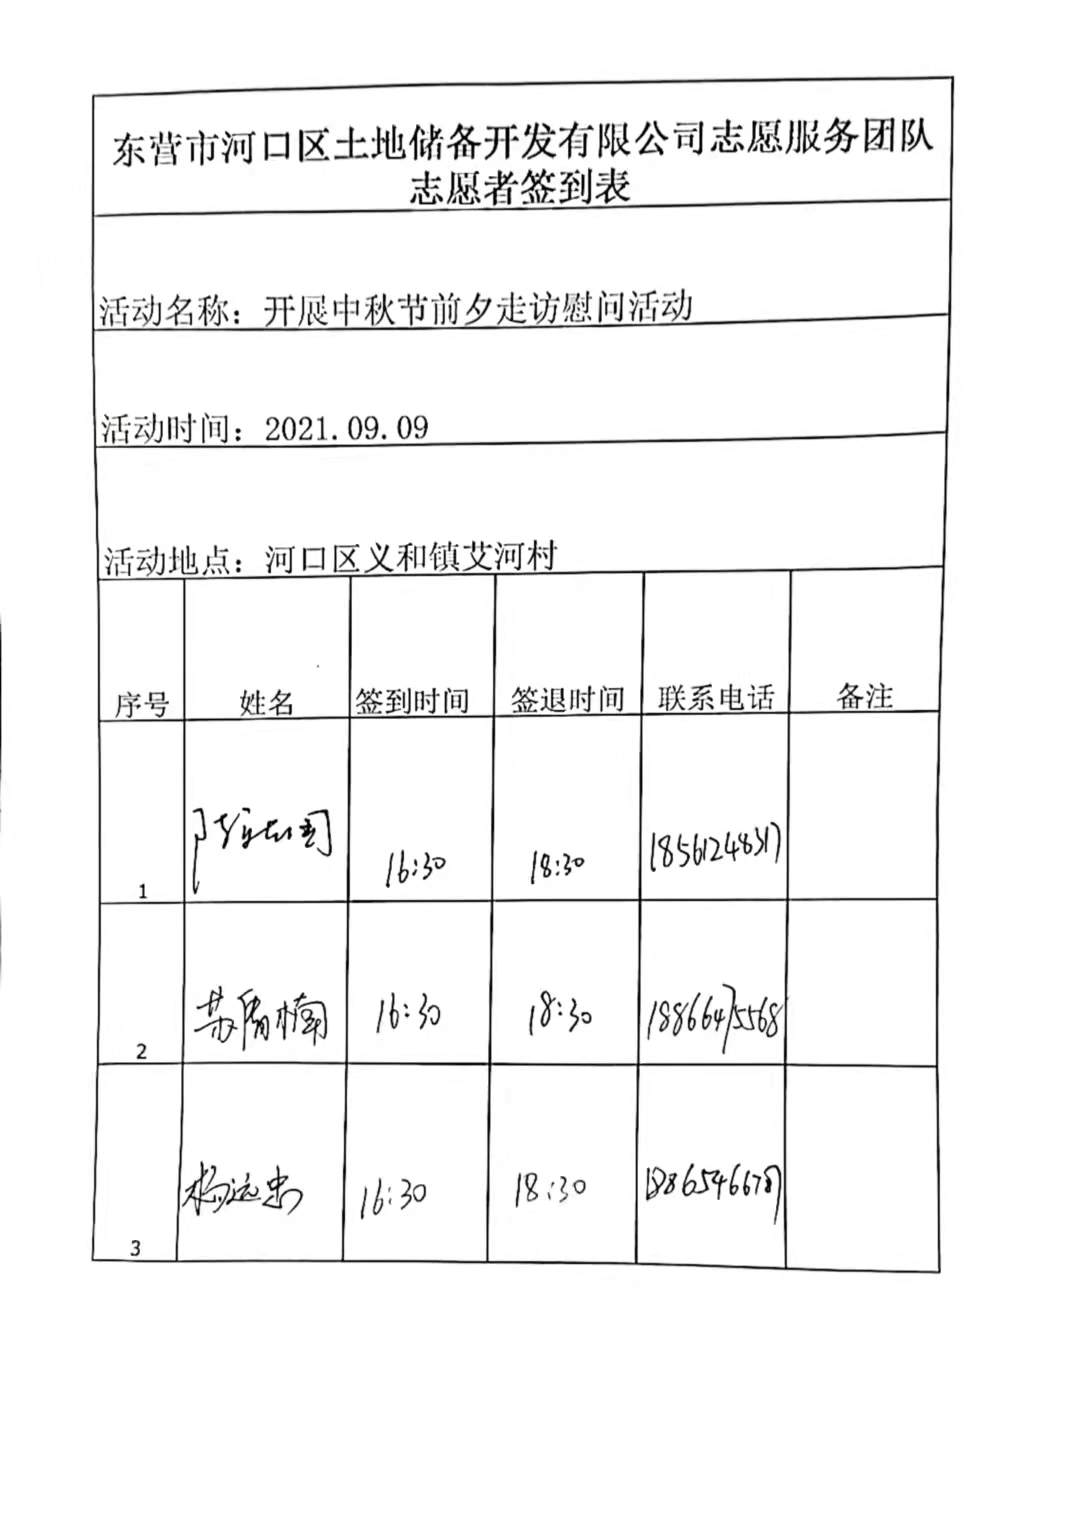 东营市河口区土地储备开发有限公司志愿服务团队
志愿者签到表
活动名称：开展中秋节前夕走访慰问活动
活动时间：2021.09.09
活动地点：河口区义和镇艾河村
序号 姓名 签到时间 签退时间 联系电话 备注
1 16:30 18:30 18561248317
2 苏 楠 16:30 18:30 18866475568
3 杨远忠 16:30 18:30